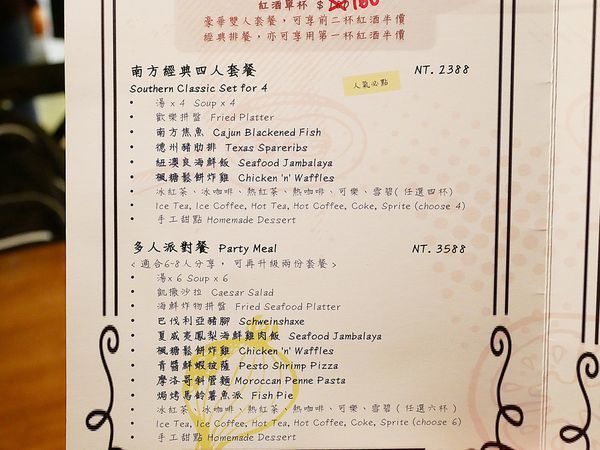 紅酒單杯 $ 160
豪華雙人套餐，可享前二杯紅酒半價
經典排餐，亦可享用第一杯紅酒半價
南方經典四人套餐 NT. 2388
Southern Classic Set for 4 人氣必點
• 湯 x 4 Soup x 4
• 歡樂拼盤 Fried Platter
• 南方焦魚 Cajun Blackened Fish
• 德州豬肋排 Texas Spareribs
• 紐澳良海鮮飯 Seafood Jambalaya
• 楓糖鬆餅炸雞 Chicken 'n' Waffles
• 冰紅茶、冰咖啡、熱紅茶、熱咖啡、可樂、雪碧( 任選四杯)
• Ice Tea, Ice Coffee, Hot Tea, Hot Coffee, Coke, Sprite (choose 4)
• 手工甜點 Homemade Dessert
多人派對餐 Party Meal NT. 3588
< 適合6-8人分享， 可再升級兩份套餐 >
• 湯x 6 Soup x 6
• 凱撒沙拉 Caesar Salad
• 海鮮炸物拼盤 Fried Seafood Platter
• 巴伐利亞豬腳 Schweinshaxe
• 夏威夷鳳梨海鮮雞肉飯 Seafood Jambalaya
• 楓糖鬆餅炸雞 Chicken 'n' Waffles
• 青醬鮮蝦披薩 Pesto Shrimp Pizza
• 摩洛哥斜管麵 Moroccan Penne Pasta
• 焗烤馬鈴薯魚派 Fish Pie
• 冰紅茶、冰咖啡、熱紅茶、熱咖啡、可樂、雪碧 ( 任選六杯 )
• Ice Tea, Ice Coffee, Hot Tea, Hot Coffee, Coke, Sprite (choose 6)
• 手工甜點 Homemade Dessert